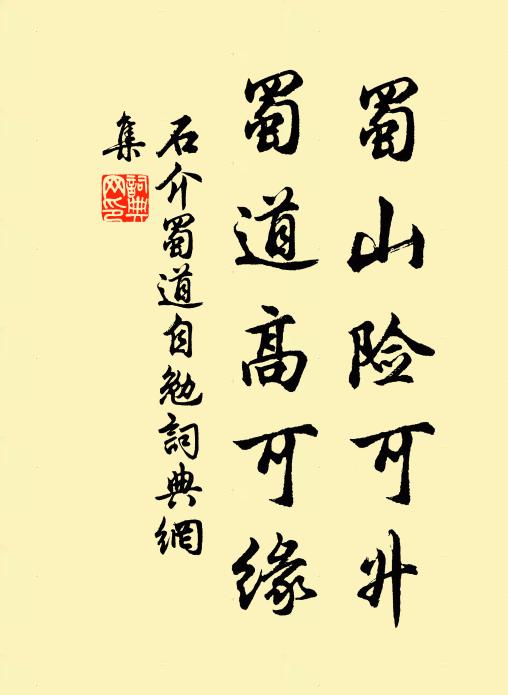 蜀山险可升
蜀道高可缘
石介蜀道自勉詞典網
集
詞典
网印